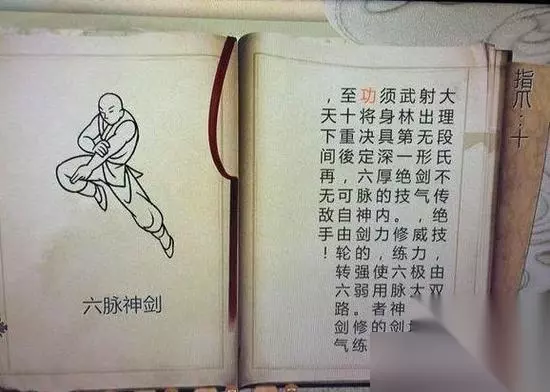 指爪
大理段氏不传绝技，由双
射出无形剑气，威力极大
武林第一绝技。修练六脉神剑
须身具深厚的内力，使用者的
功将决定六脉神剑的强弱。修练
至十重後，可自由轮转六路剑气
，天下间再无敌手！
六脉神剑